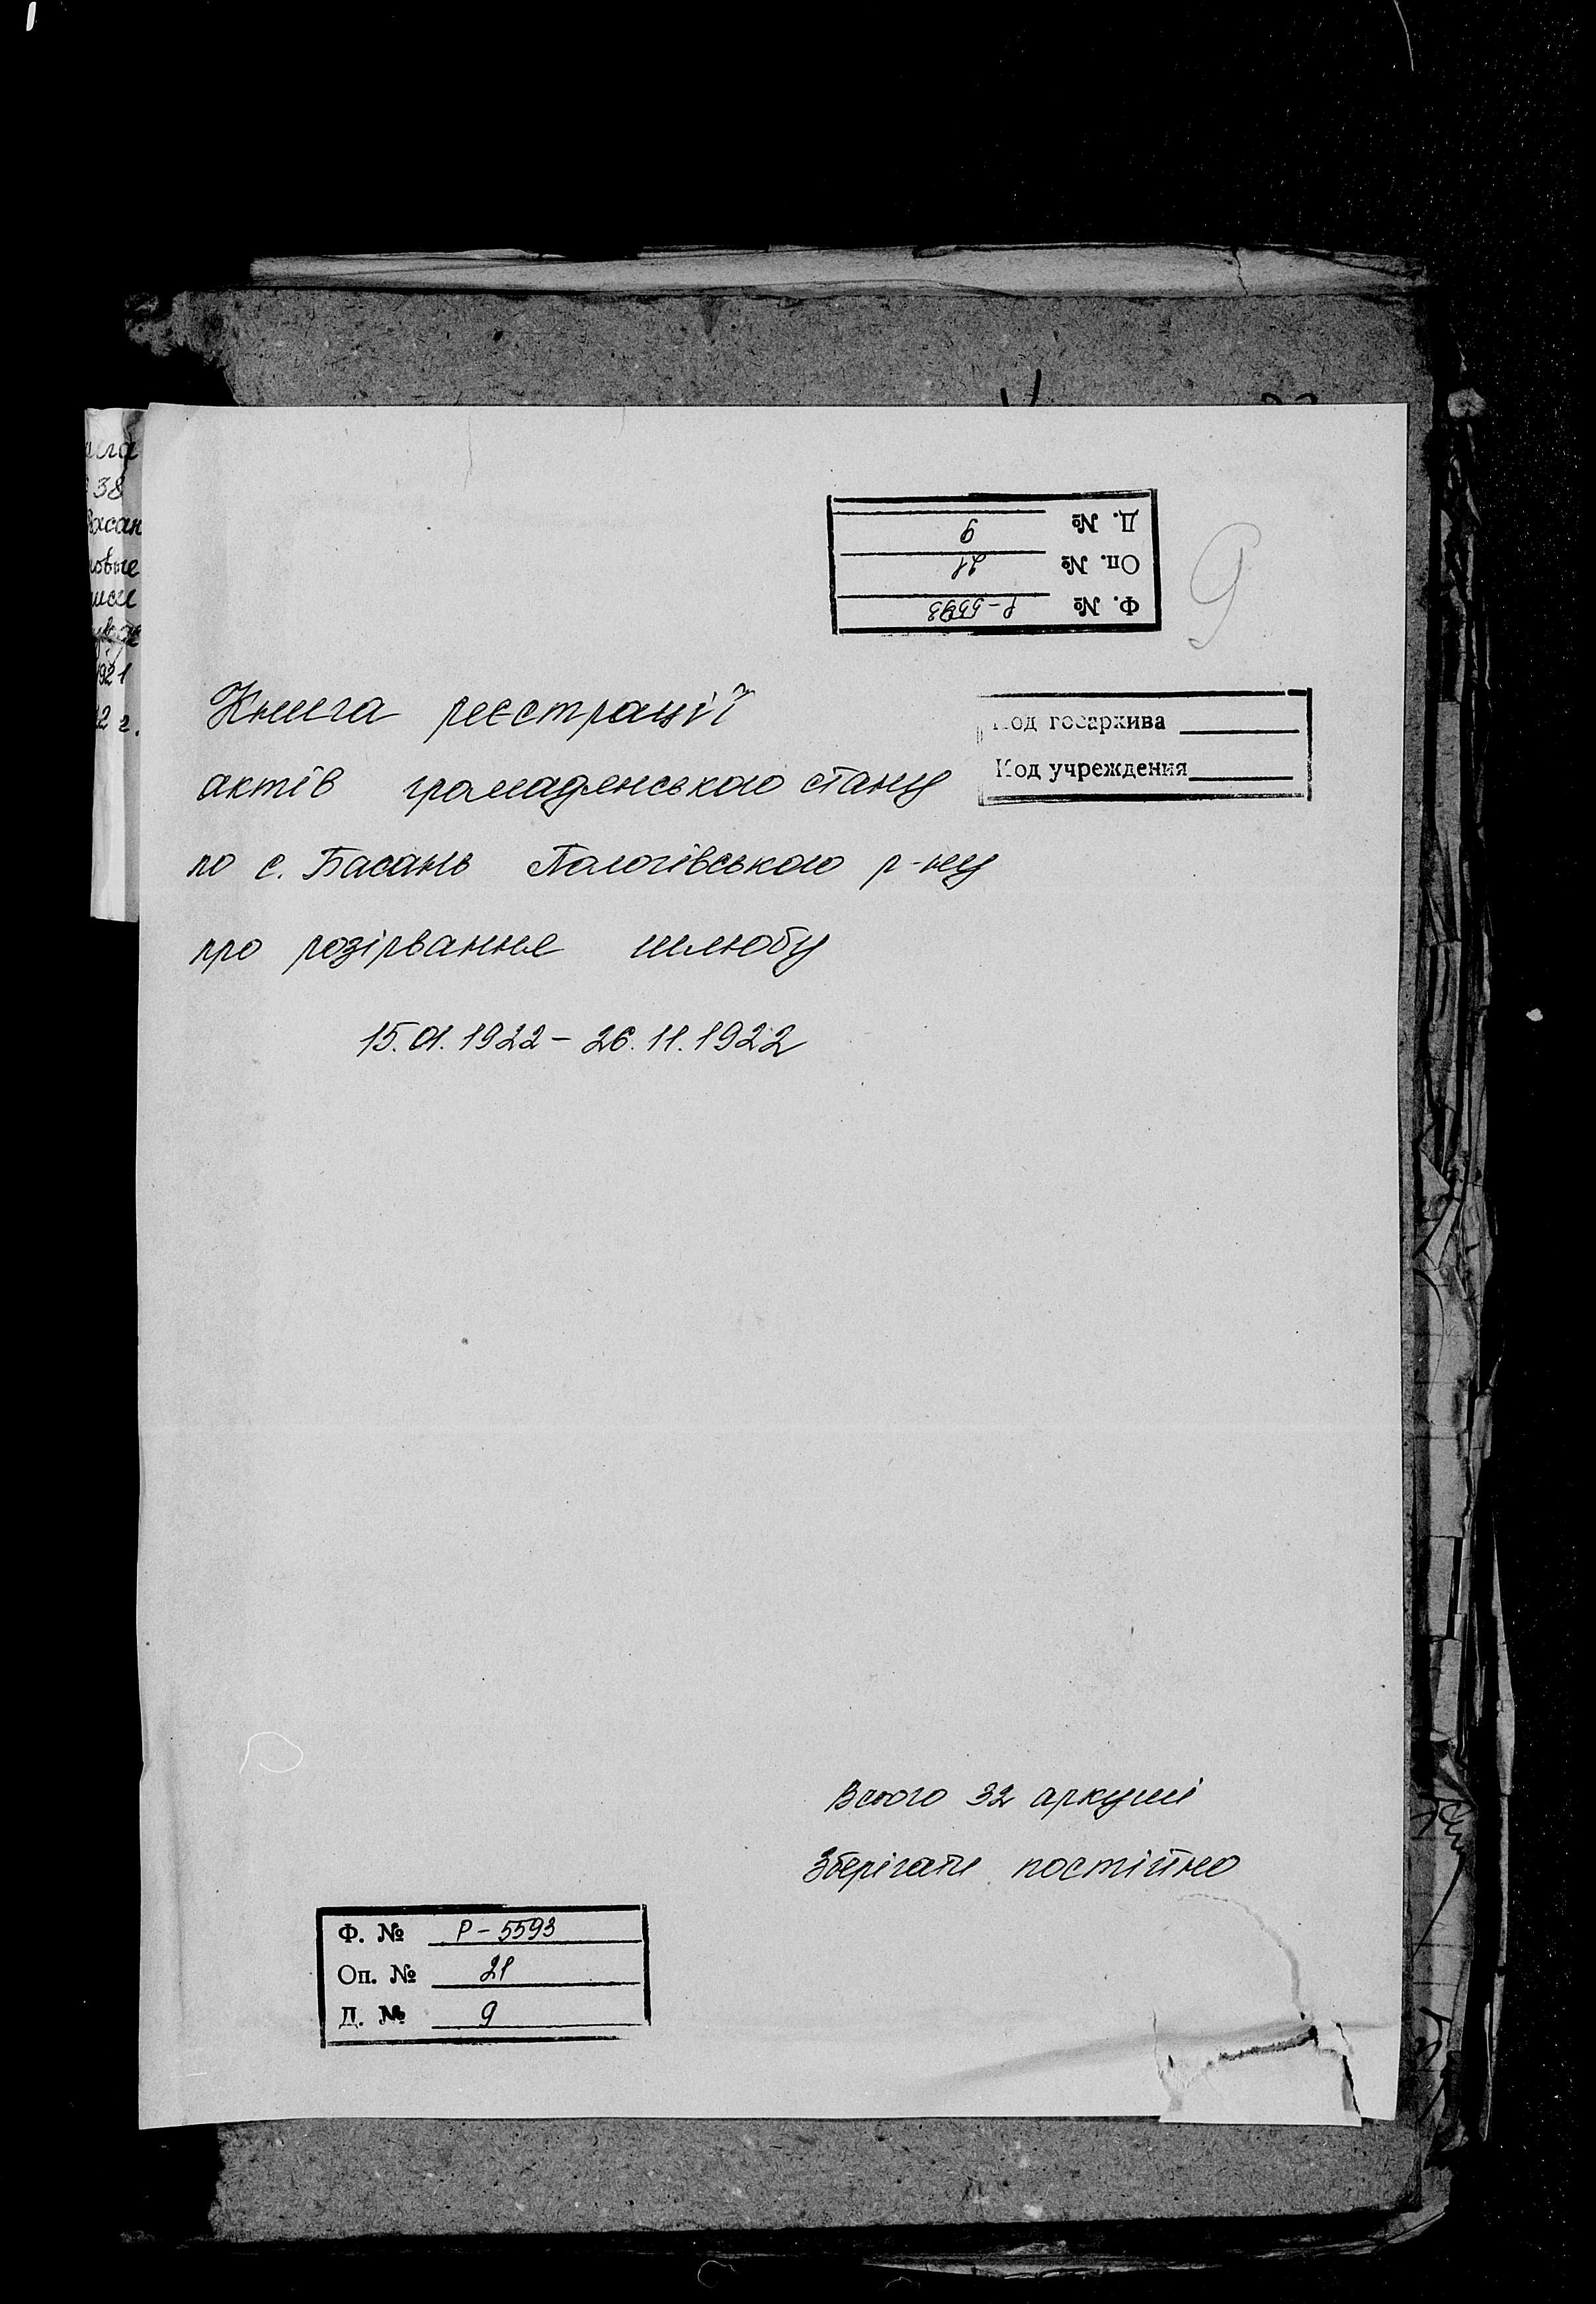 Д. № 9
Оп. № 21
Ф. № Р-5593
9
Книга реєстрації
Код госархива
актів громадянського стану
Код учреждения
по с. Басань Пологівського р-ну
про розірвання шлюбу
15.01.1922 - 26.11.1922
Всього 32 аркуші
Зберігати постійно
Ф. № Р-5593
Оп. № 21
Д. № 9
38